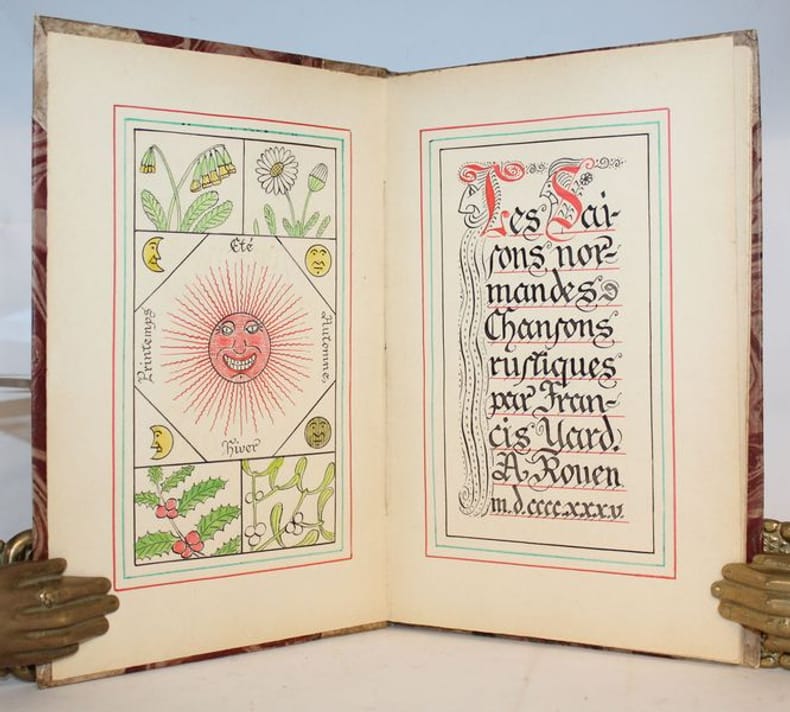 Eté
Printemps
Automne.
Hiver
Les Sai-
ſons nor-
mandes
Chanſons
ruſtiques
par Fran-
cis Yard.
A Rouen
m.d.cccc.xxxv